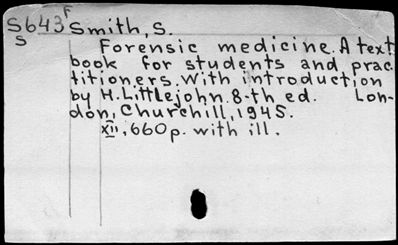 S643F Smith, S.
S
Forensic medicine. A text
book for students and prac
titioners. With introduction
by H. Littlejohn. 8-th ed. Lon-
don, Churchill, 1945.
XII, 660 p. with ill.